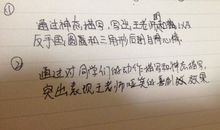 ①
通过神态描写,写出王老师画出以
反手画圆和三角形后的自得心情。
②
通过对同学们的动作描写和神态描写,
突出表现王老师嗓音的喜剧效果